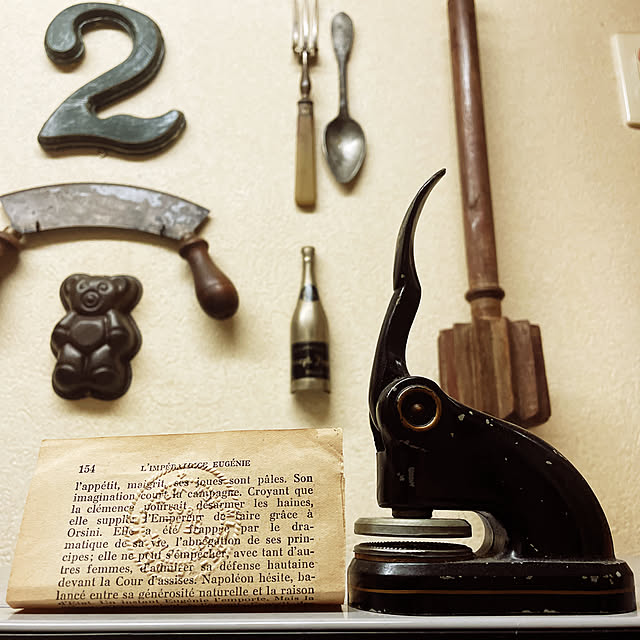 2
154 L'IMPÉRATRICE EUGÉNIE
l'appétit, maigrit, ses joues sont pâles. Son
imagination court la campagne. Croyant que
la clémence pourrait désarmer les haines,
elle supplie l'Empereur de faire grâce à
Orsini. Elle a été frappée par le dra-
matique de sa vie, l'abnégation de ses prin-
cipes; elle ne peut s'empêcher, avec tant d'au-
tres femmes, d'admirer sa défense hautaine
devant la Cour d'assises. Napoléon hésite, ba-
lancé entre sa générosité naturelle et la raison
d'État. Un instant Eugénie l'emporte. Mais la